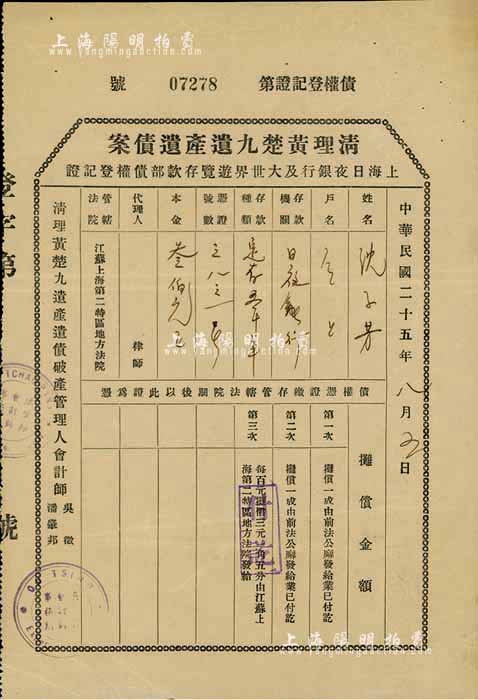 上海陽明拍賣
www.yangmingauction.com
債權登記證第 07278 號
清理黃楚九遺產遺債案
上海日夜銀行及大世界遊覽存款部債權登記證
中華民國二十五年八月五日
姓名 沈子芳
戶名 仝上
存款機關 日夜銀行
存款種類
憑證號數
本金 叁佰元正
代理人 律師
管轄法院 江蘇上海第二特區地方法院
債權憑證繳存管轄法院嗣後以此證為憑
攤償金額
第一次 攤償一成由前法公廨發給業已付訖
第二次 攤償一成由前法公廨發給業已付訖
第三次 每百元攤償三元角五分由江蘇上海第二特區地方法院發給
清理黃楚九遺產遺債破產管理人會計師 吳徵 潘肇邦
登字第
號
上海陽明拍賣
www.yangmingauction.com